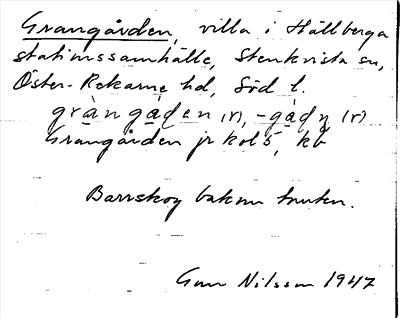 Grangården, villa i Hällberga
stationssamhälle, Stenkvista sn,
Öster-Rekarne hd, Söd l.
gràngåden (r), -gådn (r)
Grangården jr kol 5, kb
Barrskog bakom tomten.
Gun Nilsson 1947